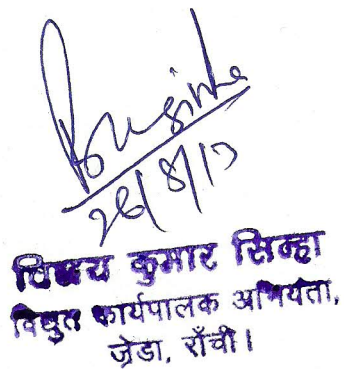 26/8/17
विजय कुमार सिन्हा
विद्युत कार्यपालक अभियंता,
ज्रेडा, राँची।